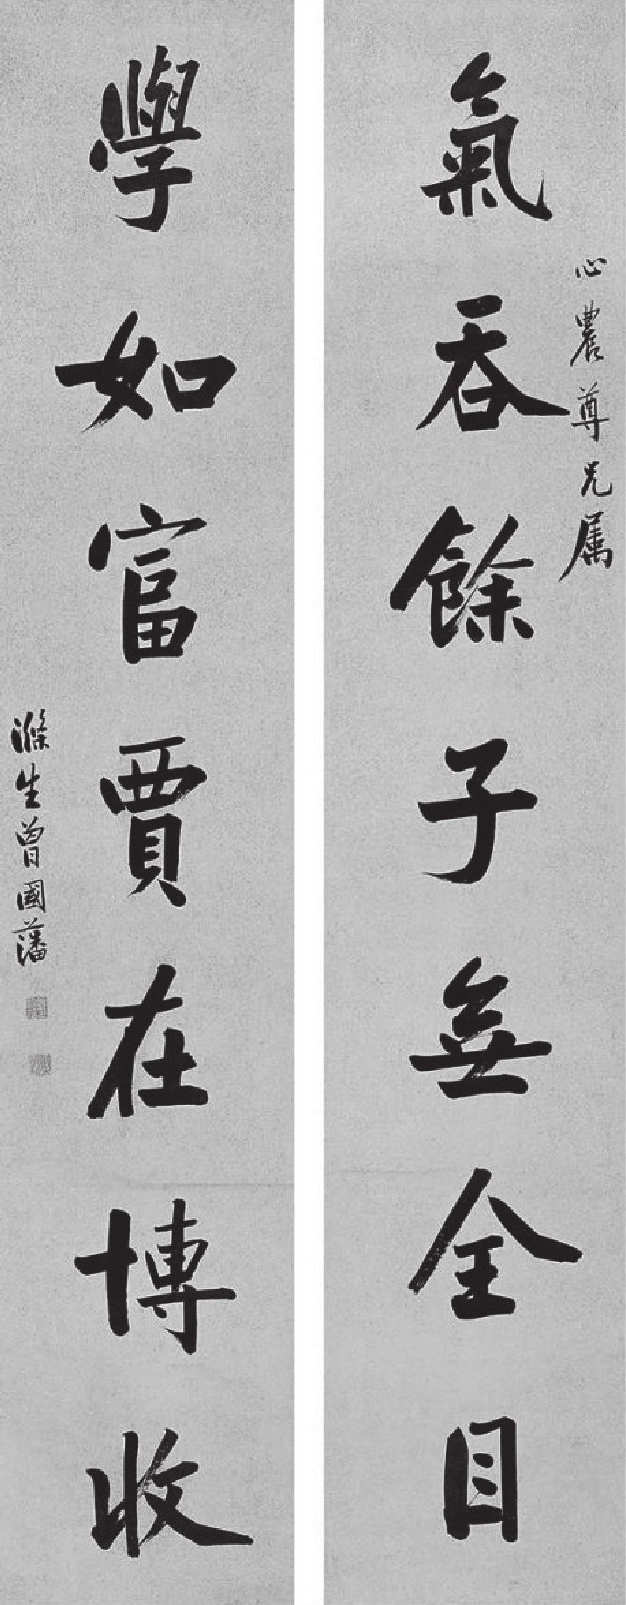 心農尊兄属
氣吞餘子無全目
學如富賈在博收
滌生曾國藩